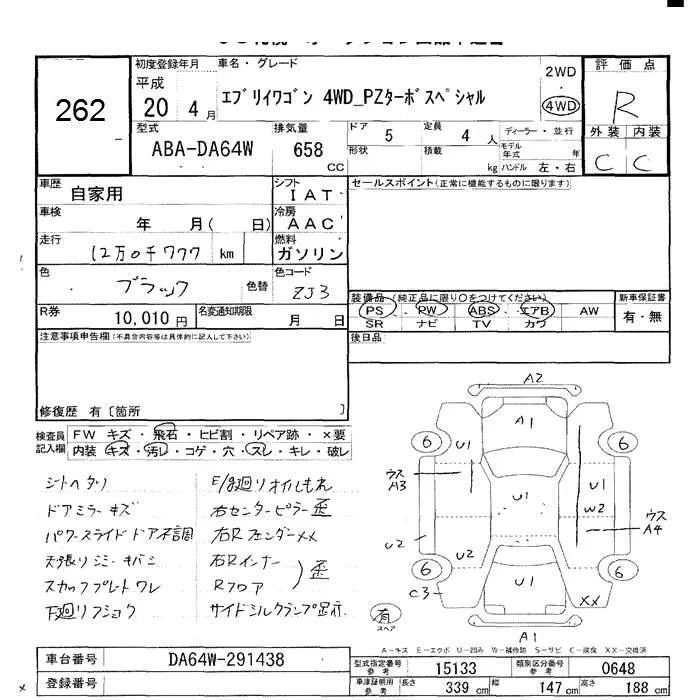 262
初度登録年月
平成
20 4 月
車名・グレード
エブリイワゴン 4WD_PZターボスペシャル
2WD
4WD
評価点
R
外装 内装
C C
型式
ABA-DA64W
排気量
658
CC
ドア 5 定員 4 人
形状 積載 kg
ディーラー・並行
モデル年式 年
ハンドル 左・右
車歴
自家用
シフト
I A T
セールスポイント(正常に機能するものに限ります)
車検
年 月( 日)
冷房
A A C
走行
12万0千777 km
燃料
ガソリン
色
ブラック
色替
色コード
ZJ3
装備品(純正品に限り○をつけてください)
PS PW ABS エアB AW
SR ナビ TV カワ
新車保証書
有・無
R券
10,010 円
名変通知期限
月 日
後日品
注意事項申告欄(不具合内容等は具体的に記入して下さい)
修復歴 有〔箇所 〕
検査員記入欄
FW キズ・飛石・ヒビ割・リペア跡・×要
内装・キズ・汚レ・コゲ・穴・スレ・キレ・破レ
シートヘタリ
ドアミラーキズ
パワースライドドア不調
天張リシミ・キバミ
スカッフプレートワレ
下廻リフショク
E/g廻リオイルもれ
右センターピラー歪
右Rフェンダー××
右Rインナー
Rフロア
歪
サイドシルクランプ跡
A2
A1
6
6
U1
ウス
A3
U1
U1
W2
ウス
A4
U2
U2
6
6
C3
U1
××
有
スペア
A1
A-キス E-エクボ U-凹み W-補修跡 S-サビ C-腐食 XX-交換済
車台番号
DA64W-291438
型式指定番号
参考
15133
類別区分番号
参考
0648
登録番号
車庫証明用
参考
長さ 339 cm 幅 147 cm 高さ 188 cm